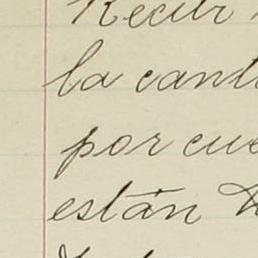 Recibí
la canti
por cue
están